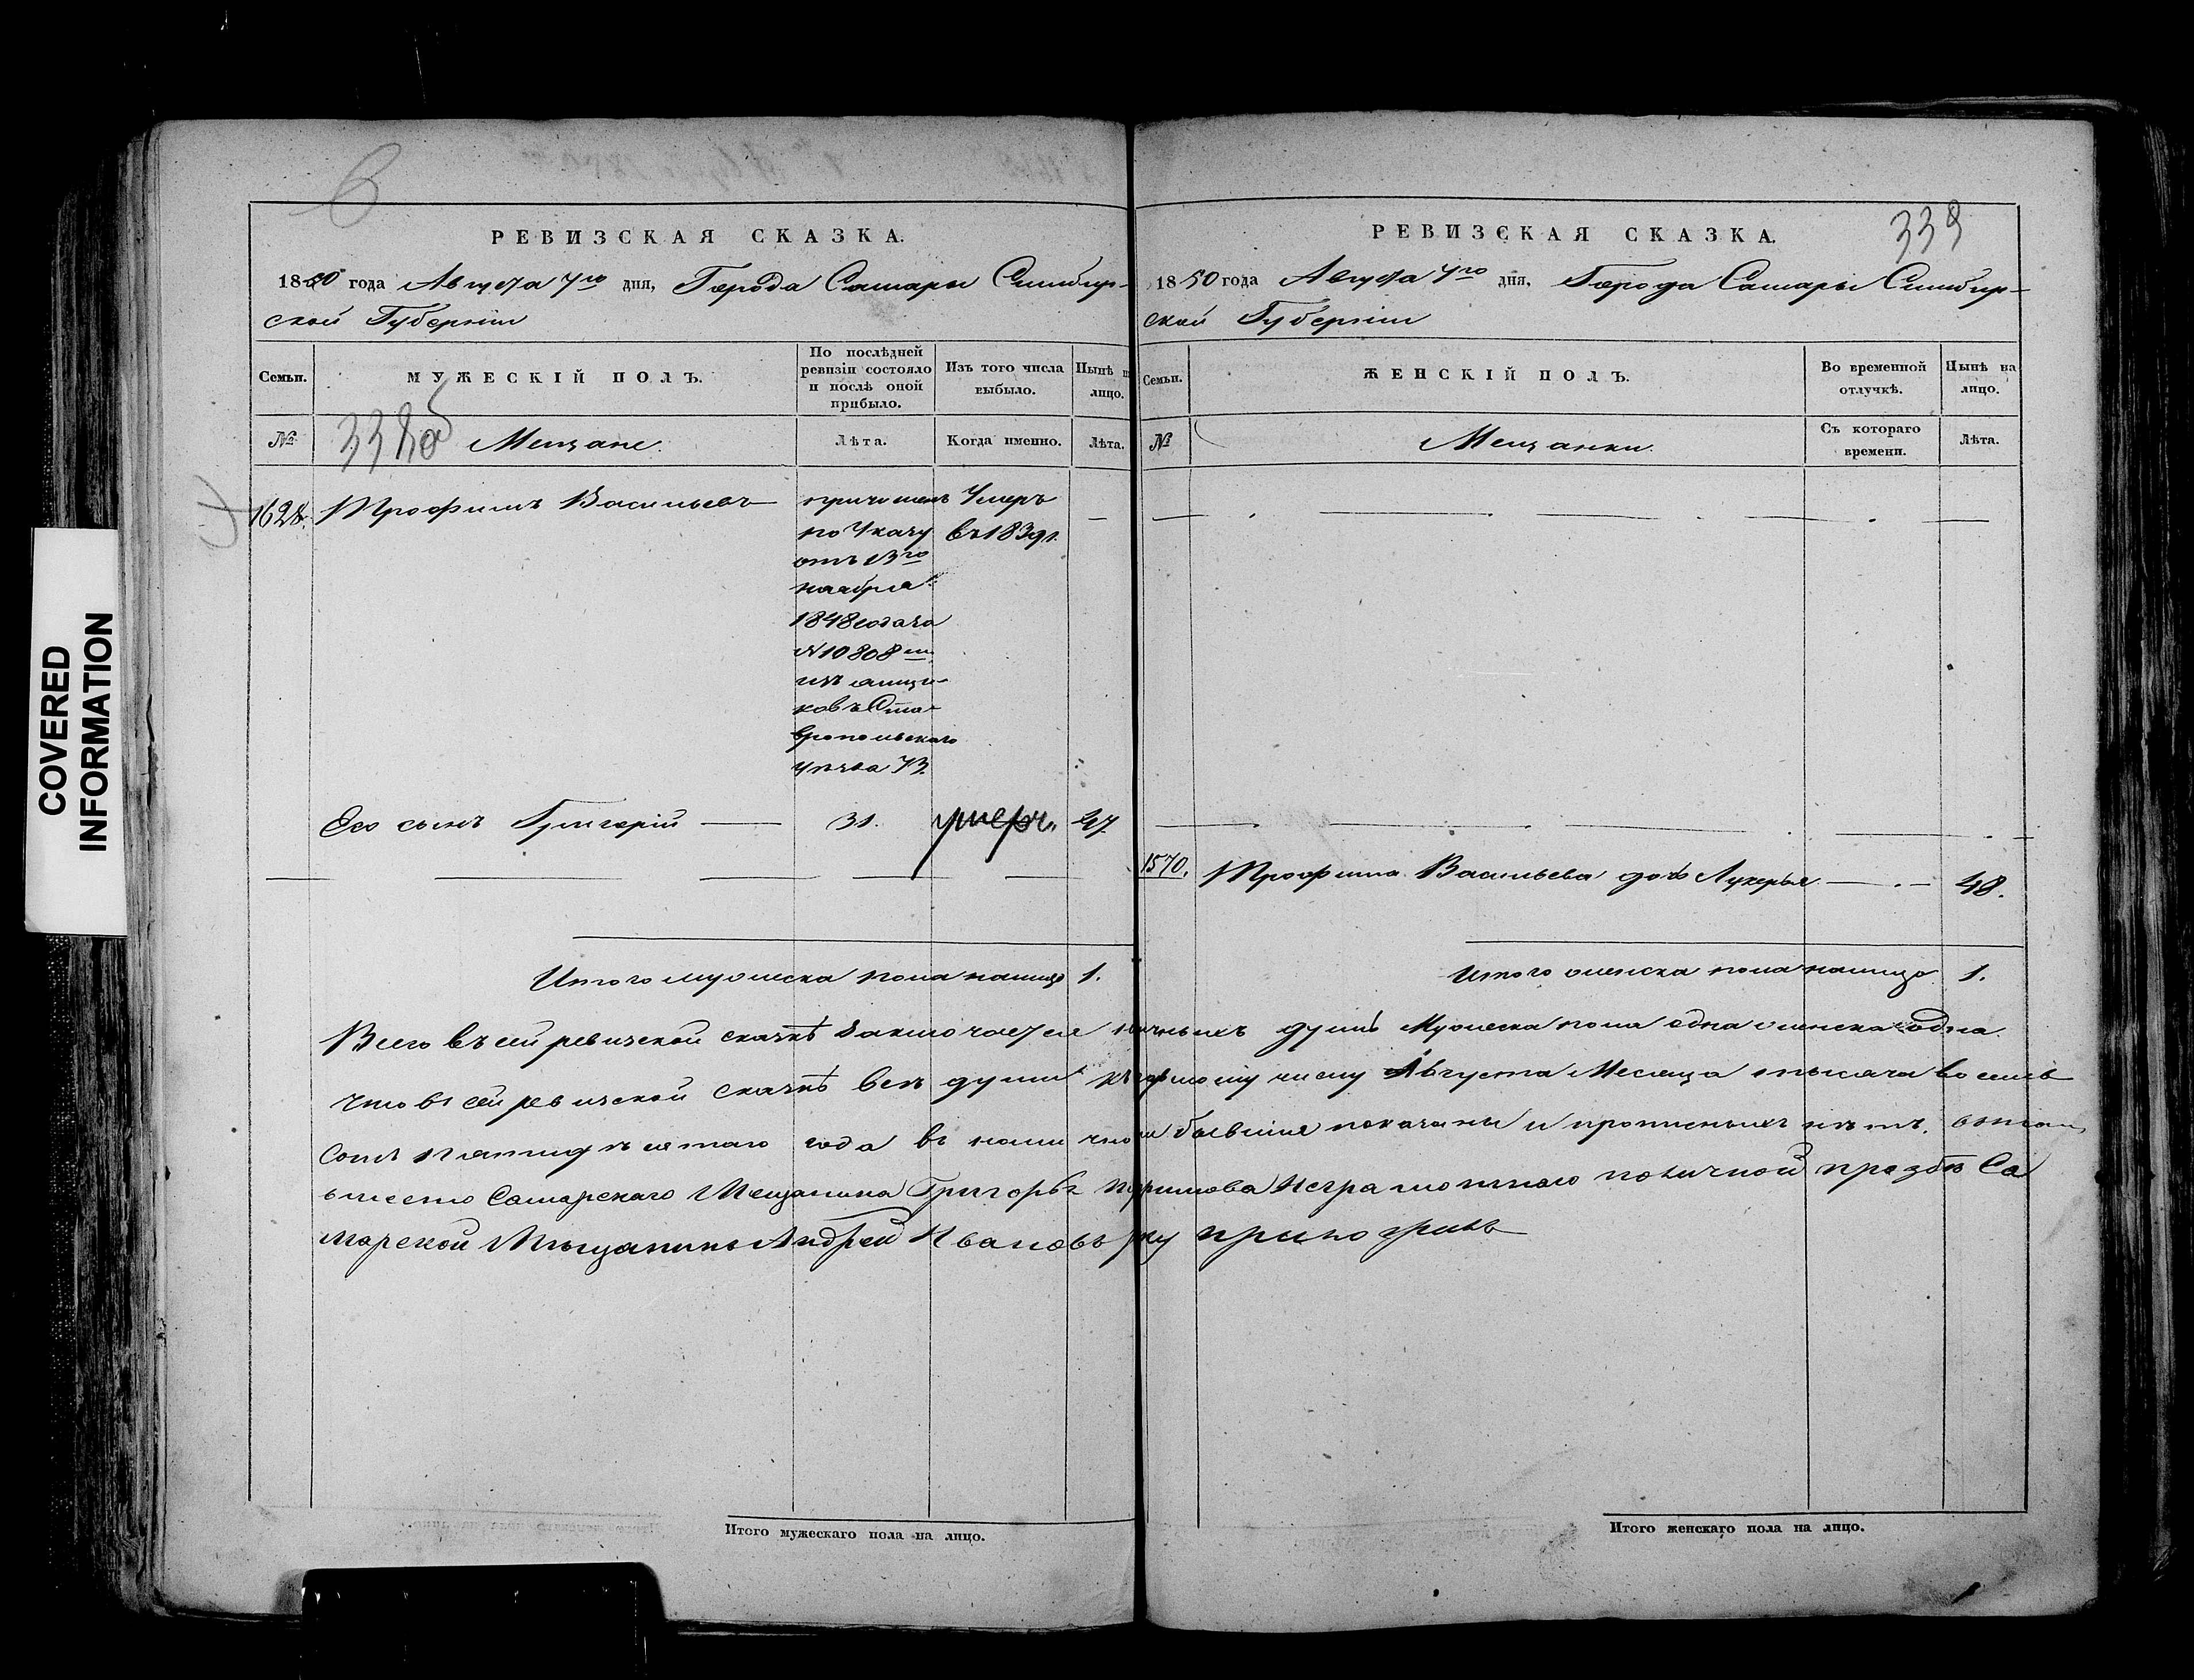 6
РЕВИЗСКАЯ СКАЗКА.
1850 года Августа 7го дня, Города Самары Симбир-
ской Губернiи
Семьи.
МУЖЕСКІЙ ПОЛЪ.
По послѣдней
ревизіи состояло
и послѣ оной
прибыло.
Изъ того числа
выбыло.
Нынѣ н
лицо.
№
Мещане.
Лѣта.
Когда именно.
Лѣта.
1628.
Трофимъ Васильевъ
причисленъ
по Указу
отъ
ноября
1848 года за
№ 10808 мъ
изъ ямщи-
ковъ Ста-
вропольскаго
уѣзда 73.
Умеръ
въ 1839 г.
Его сынъ Григорій
31.
умеръ.
47
Итого мужеска пола налицо 1.
COVERED
INFORMATION
339
РЕВИЗСКАЯ СКАЗКА.
1850 года Августа 7го дня, Города Самары Симбир-
ской Губернiи
Семьи.
ЖЕНСКІЙ ПОЛЪ.
Во временной
отлучкѣ.
Нынѣ на
лицо.
№
Мещанки.
Съ котораго
времени.
Лѣта.
1570.
Трофима Васильева дочь Лукерья
48.
Итого женска пола налицо 1.
Всего въ сей ревизской сказкѣ заключается душъ Мужеска пола одна женска одна.
что въ сей ревизской сказкѣ всѣ души къ числу Августа Месяца тысяча восемь
сотъ пятидесятаго года въ бывшия показаны и прописныхъ нѣтъ.
вместо Самарскаго Мещанина Григорья Трофимова неграмотнаго по личной прозбѣ Са
марской Мѣщанинъ Андрей Ивановъ руку приложилъ
Итого мужескаго пола на лицо.
Итого женскаго пола на лицо.